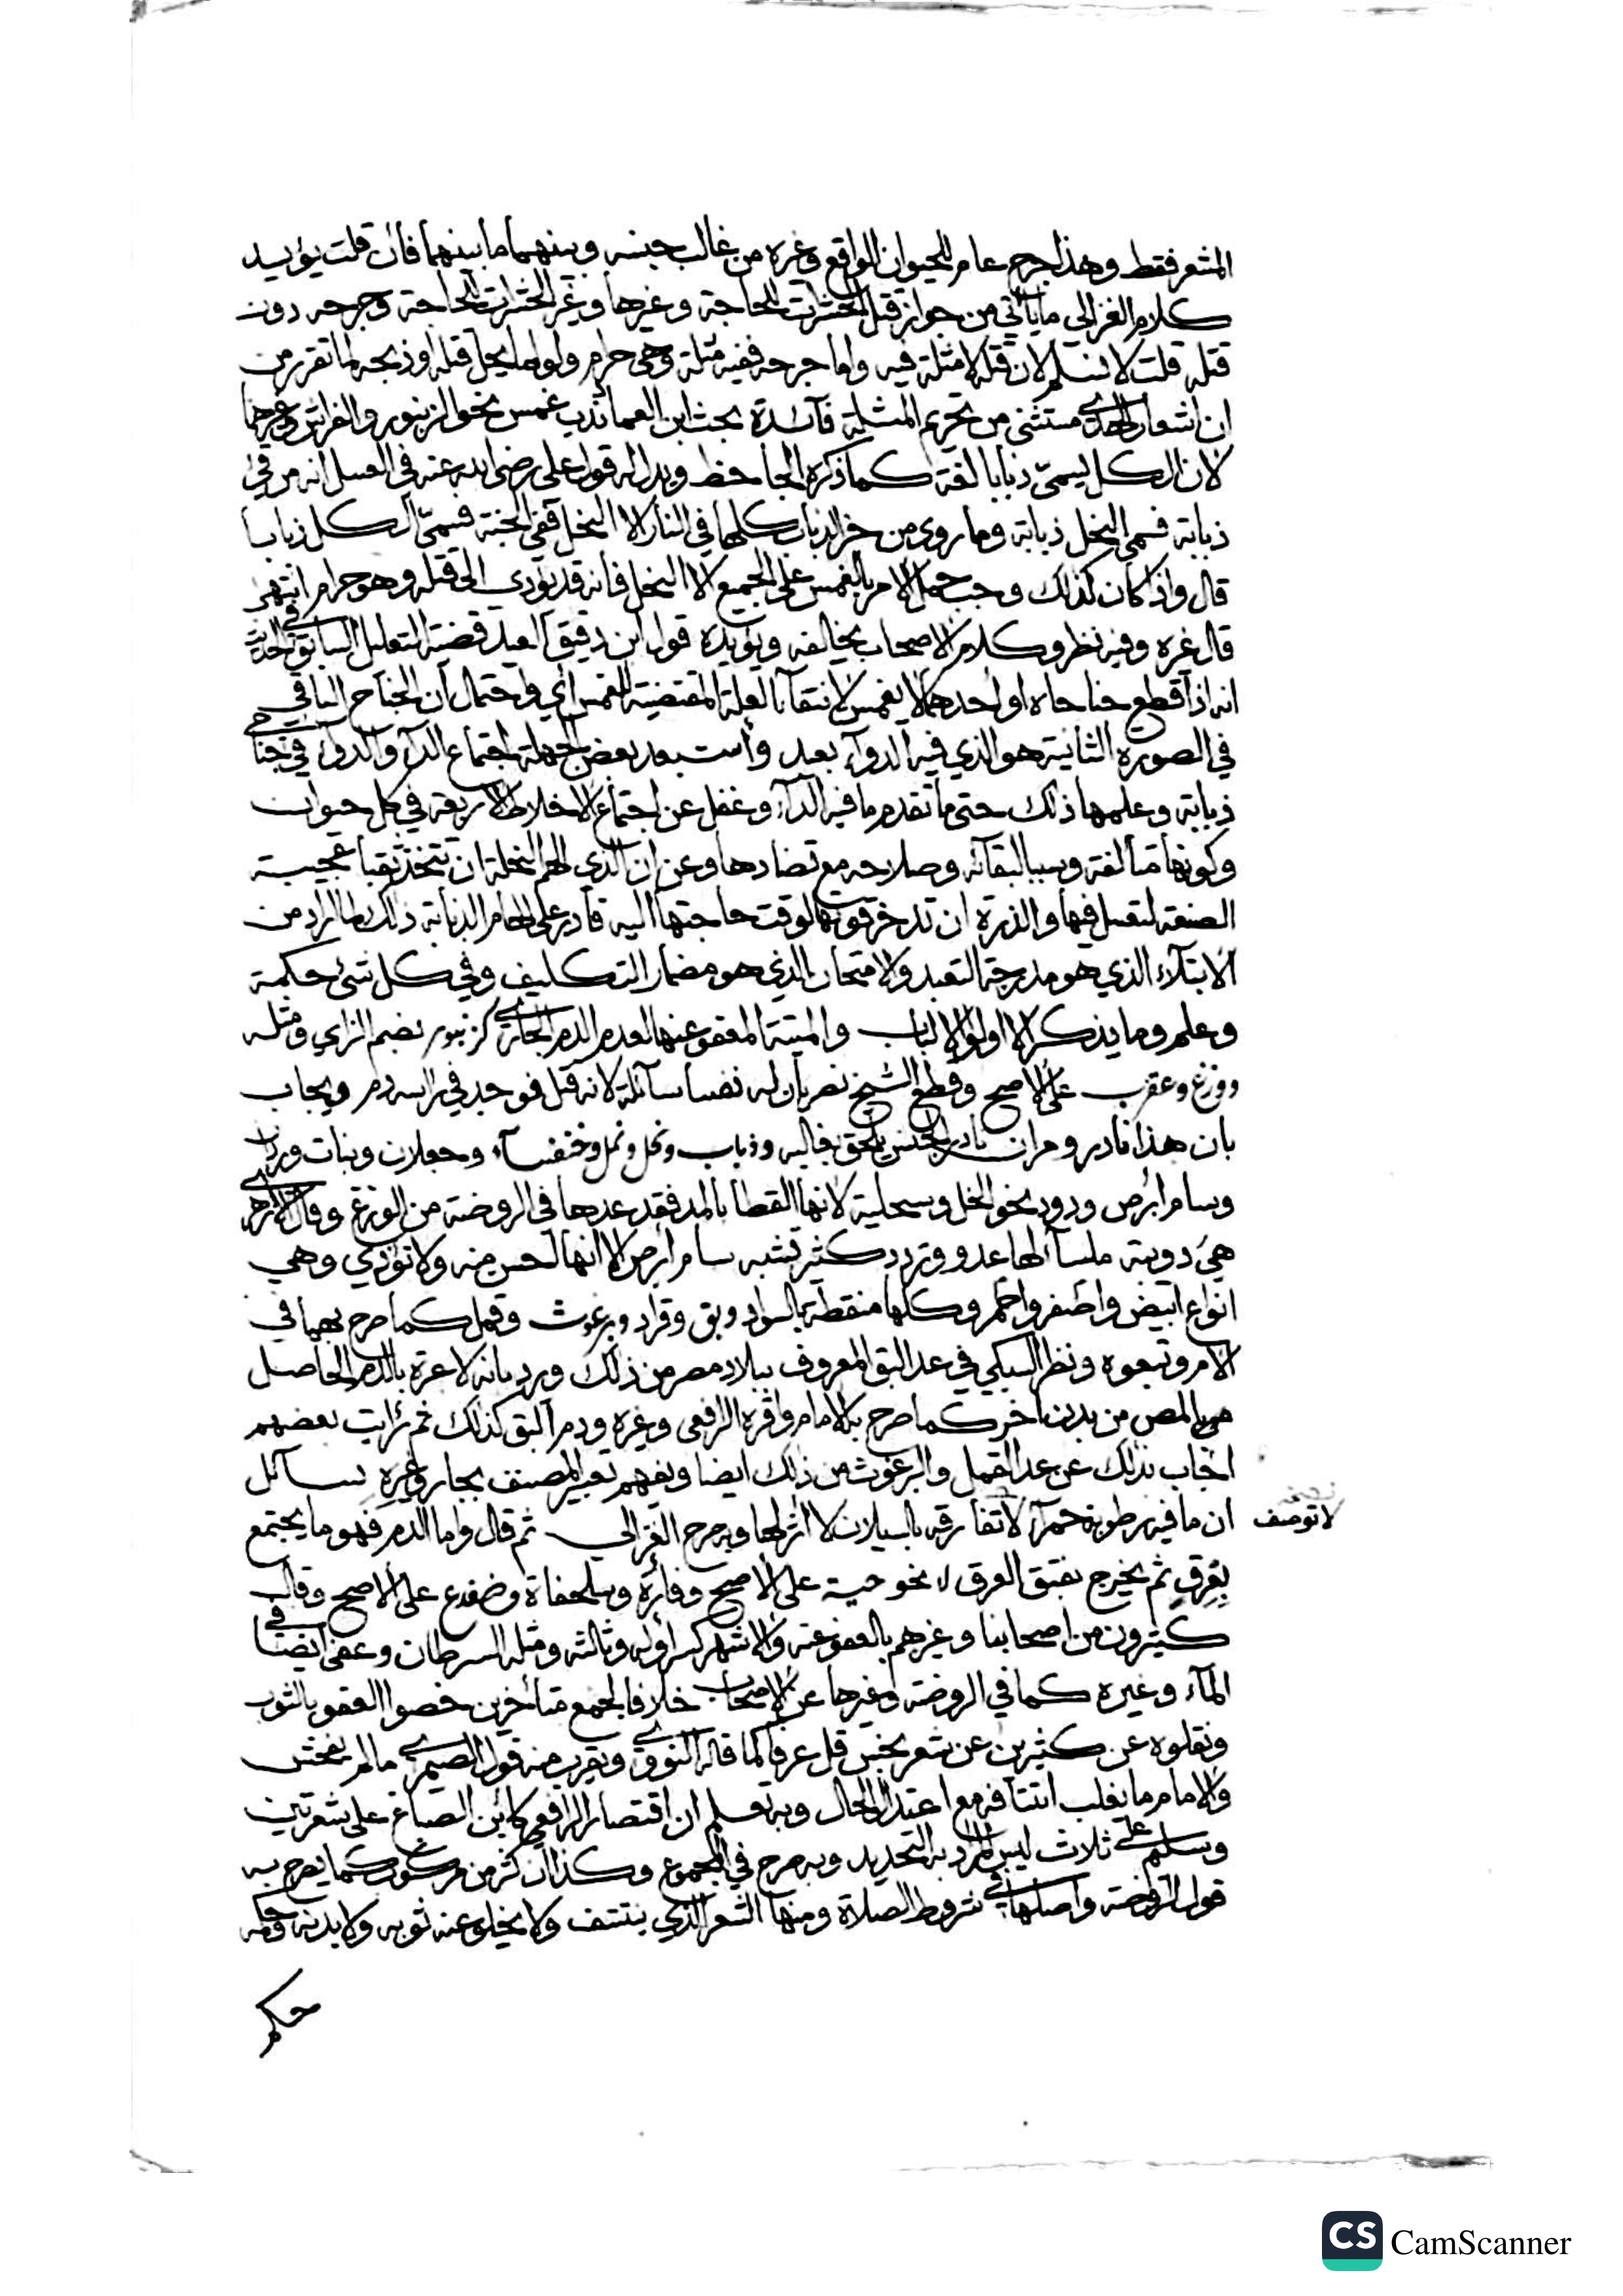 المشعر فقط وهذا جرح عام للحيوان الواقع وغيره من غالب جنسه وبينهما ما بينهما فان قلت يؤيد
كلام الغزالي ما يأتي من جواز قتل الحشرات لحاجة وغيرها وغير الحشرات لحاجة وجرحه دون
قتله قلت لا نسلم لان قتله لا مثلة فيه واما جرحه ففيه مثلة وهي حرام ولو لما يحل قتله او ذبحه لما تقرر من
ان اشعار الهدي مستثنى من تحريم المثلة فآئدة بحث ابن العماد ندب غمس نحو الزنبور والفراش وغيرهما
لان الكل يسمى ذبابا لغة كما ذكره الجاحظ ويدل له قول علي رضي الله عنه في العسل انه من قيئ
ذبابة فسمى النحل ذبابة وما روي من خبر الذباب كلها في النار الا النحل ففي الجنة فسمى الكل ذبابا
قال واذا كان كذلك وجب حمل الامر بالغمس على الجميع الا النحل فانه قد يؤدي الى قتله وهو حرام انتهى
قال غيره وفيه نظر وكلام الاصحاب يخالفه ويؤيده قول ابن دقيق العيد قضية التعليل السابق في الحديث
انه اذا قطع جناحاه او احدهما لا يغمس لانتفآء العلة المقتضية للغمس اي واحتمال ان الجناح الباقي
في الصورة الثانية هو الذي فيه الدوآء بعيد واستبعد بعض الجهلة اجتماع الدآء والدوآء في جناحي
ذبابة وعلمها ذلك حتى ما تقدم ما فيه الدآء وغفل عن اجتماع الاخلاط الاربعة في كل حيوان
وكونها متألفة وسببا لبقآئه وصلاحه مع تضادها وعن ان الذي الهم النحلة ان تتخذ ثقبا عجيبة
الصنعة لتعسل فيها والذرة ان تدخر قوتها لوقت حاجتها اليه قادر على الهام الذبابة ذلك لما اراد من
الابتلآء الذي هو مدرجة التعبد والامتحان الذي هو مضمار التكليف وفي كل شئ حكمة
وعلم وما يذكر الا اولوا الالباب والميتة المعفو عنها لعدم الدم الجاري كزنبور بضم الزاي ومثله
ووزغ وعقرب على الاصح وقطع الشيخ نصر بان له نفسا سآئلة لانه قتل فوجد في راسه دم ويجاب
بان هذا نادر ومر ان نادر الجنس يلحق بغالبه وذباب ونحل ونمل وخنفسآء وجعلان وبنات وردان
وسام ابرص ودود نحو الخل وسحلية لانها القطا بالمد فقد عدها في الروضة من الوزغ وقال الازهري
هي دويبة ملسآ لها عدو وتردد كثير تشبه سام ابرص الا انها احسن منه ولا تؤذي وهي
انواع ابيض واصفر واحمر وكلها منقطة بالسواد وبق وقراد وبرغوث وقمل كما صرح بهما في
الام وتبعوه ونظر السبكي في عد البق المعروف ببلاد مصر من ذلك ورد بانه لا عبرة بالدم الحاصل
من المص من بدن اخر كما صرح به الامام واقره الرافعي وغيره ودم البق كذلك ثم رأيت بعضهم
اجاب بذلك عن عد القمل والبرغوث من ذلك ايضا ويفهم تعبير المصنف بجار وغيره بسائل
ان ما فيه رطوبة حمرآ لا تفارقه بالسيلان لا اثر لها وبه صرح الغزالي ثم قال واما الدم فهو ما يجتمع
لا توصف
بعرق ثم يخرج بفتق العرق لا نحو حية على الاصح وفارة وسلحفاة وضفدع على الاصح وقال
كثيرون من اصحابنا وغيرهم بالعفو عنه والاشهر كسر اوله وثالثه ومثله السرطان وعفي ايضا في
المآء وغيره كما في الروضة وغيرها عن الاصحاب خلافا لجمع متأخرين خصوا العفو بالثوب
ونقلوه عن كثيرين عن شعر نجس قل عرفا كما قاله النووي ويقرب منه قول الصيمري ما لم يفحش
والامام ما يغلب انتتافه مع اعتدال الحال وبه تعلم ان اقتصار الرافعي كابن الصباغ على شعرتين
وسليم على ثلاث ليس المراد به التحديد وبه صرح في المجموع وكذا ان كثر من مركوب كما يصرح به
قول الروضة واصلها في شروط الصلاة ومنها الشعر الذي ينتتف ولا يخلو عنه ثوبه ولا بدنه وحكمه
حكم
CS CamScanner